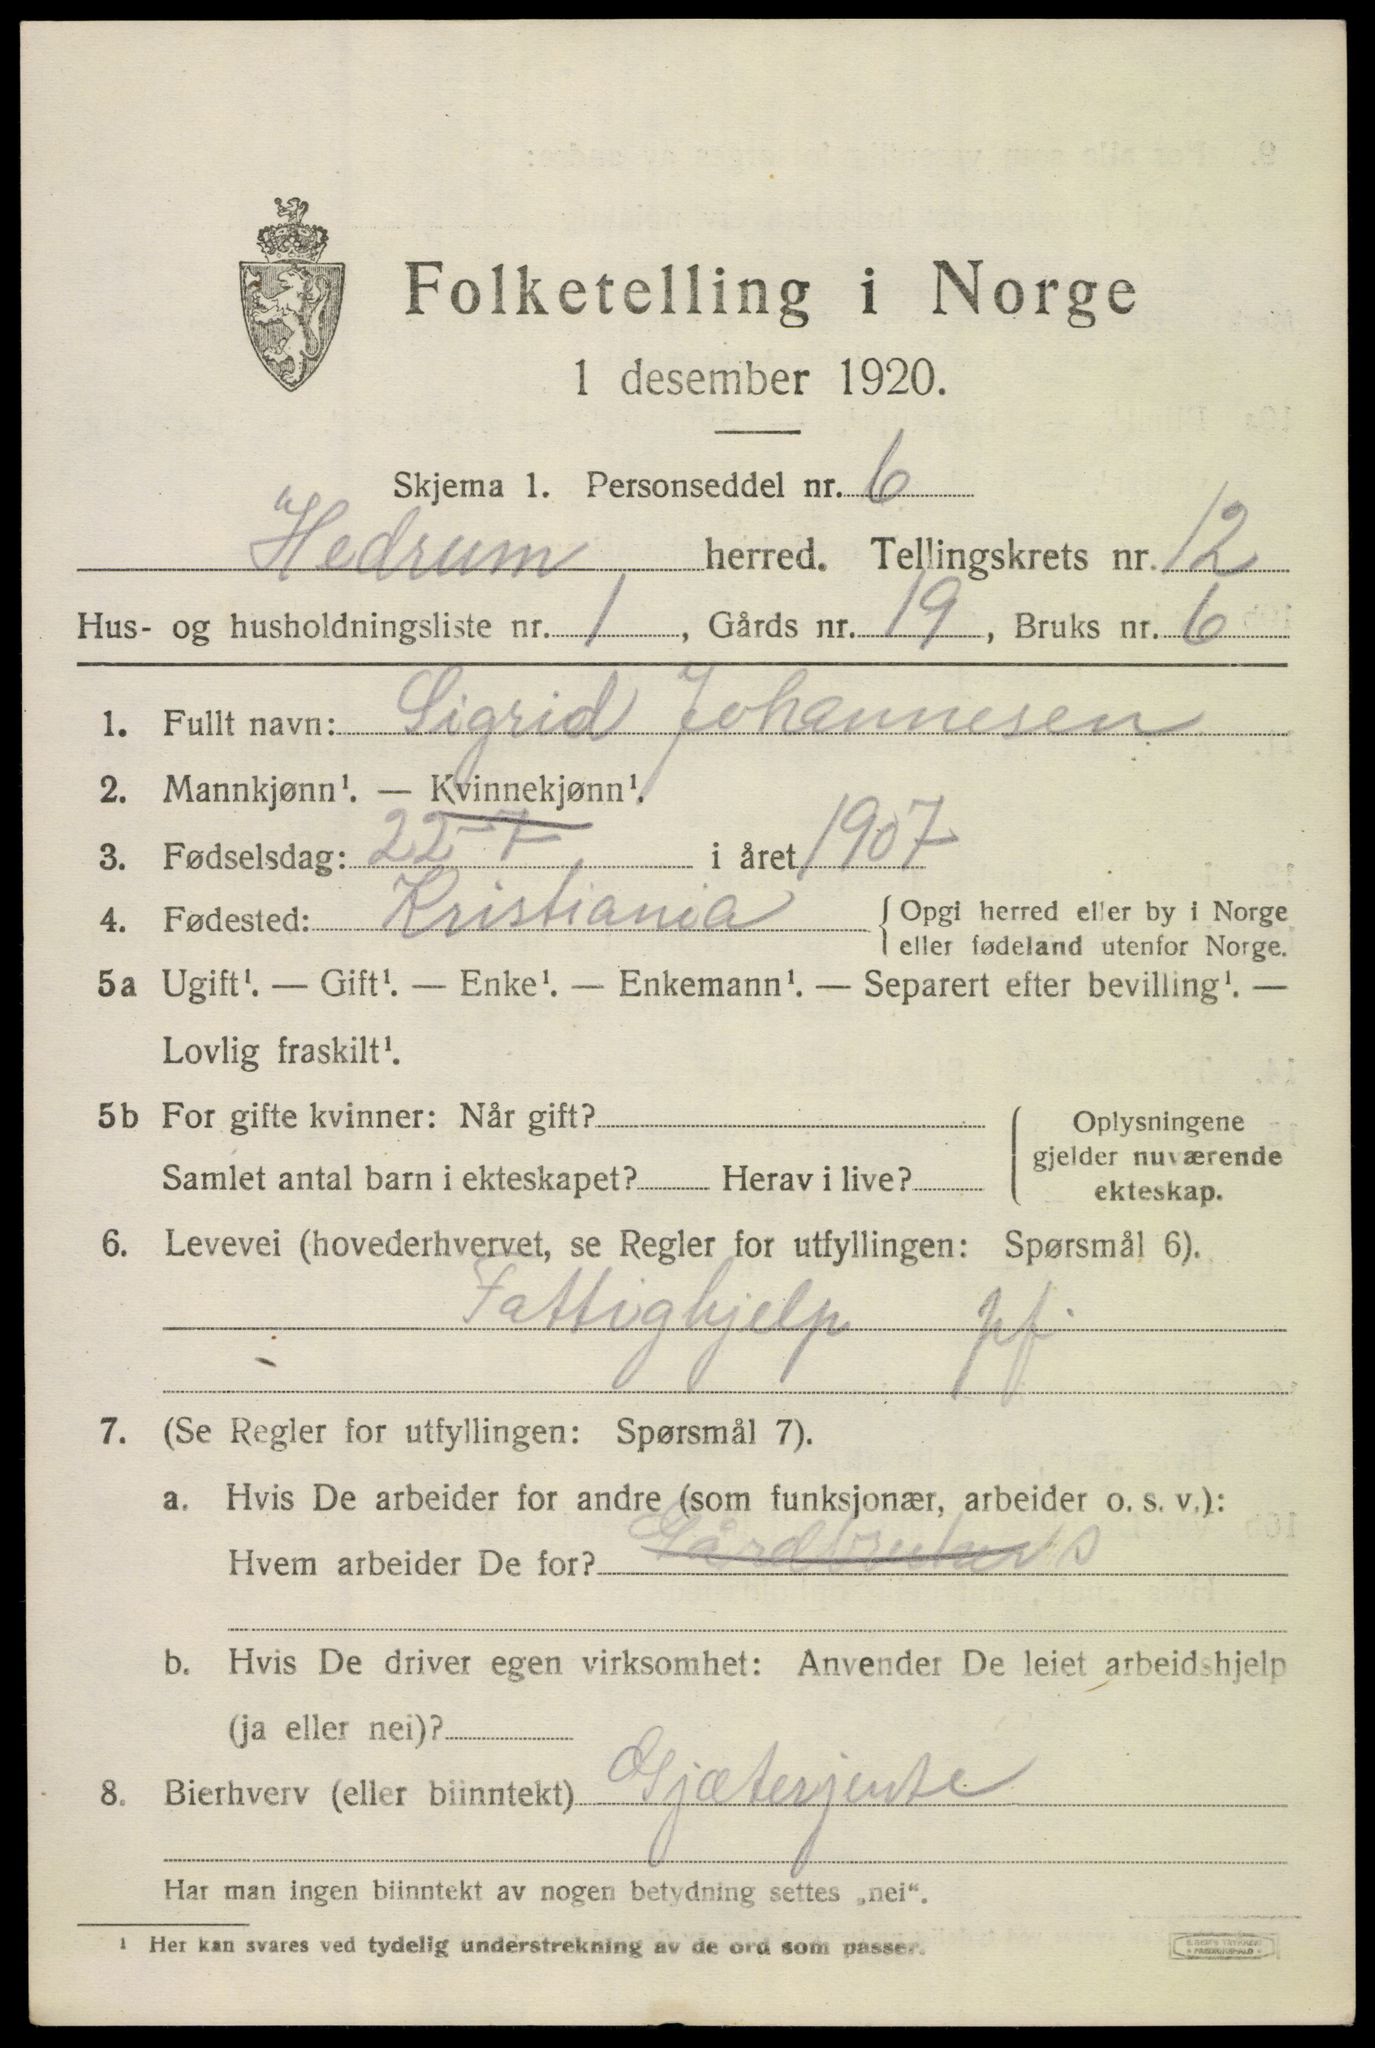 Folketelling i Norge
1 desember 1920.
Skjema 1. Personseddel nr. 6
Hedrum herred. Tellingskrets nr. 12
Hus- og husholdningsliste nr. 1, Gårds nr. 19, Bruks nr. 6
1. Fullt navn: Sigrid Johannesen
2. Mannkjønn¹. — Kvinnekjønn¹.
3. Fødselsdag: 22-7 i året 1907
4. Fødested: Kristiania { Opgi herred eller by i Norge
eller fødeland utenfor Norge.
5a Ugift¹. — Gift¹. — Enke¹. — Enkemann¹. — Separert efter bevilling¹. —
Lovlig fraskilt¹.
5b For gifte kvinner: Når gift?
Samlet antal barn i ekteskapet? Herav i live?
Oplysningene
gjelder nuværende
ekteskap.
6. Levevei (hovederhvervet, se Regler for utfyllingen: Spørsmål 6).
Fattighjelp pf.
7. (Se Regler for utfyllingen: Spørsmål 7).
a. Hvis De arbeider for andre (som funksjonær, arbeider o. s. v.):
Hvem arbeider De for?
b. Hvis De driver egen virksomhet: Anvender De leiet arbeidshjelp
(ja eller nei)?
8. Bierhverv (eller biinntekt) Gjæterjente
Har man ingen biinntekt av nogen betydning settes „nei“.
¹ Her kan svares ved tydelig understrekning av de ord som passer.